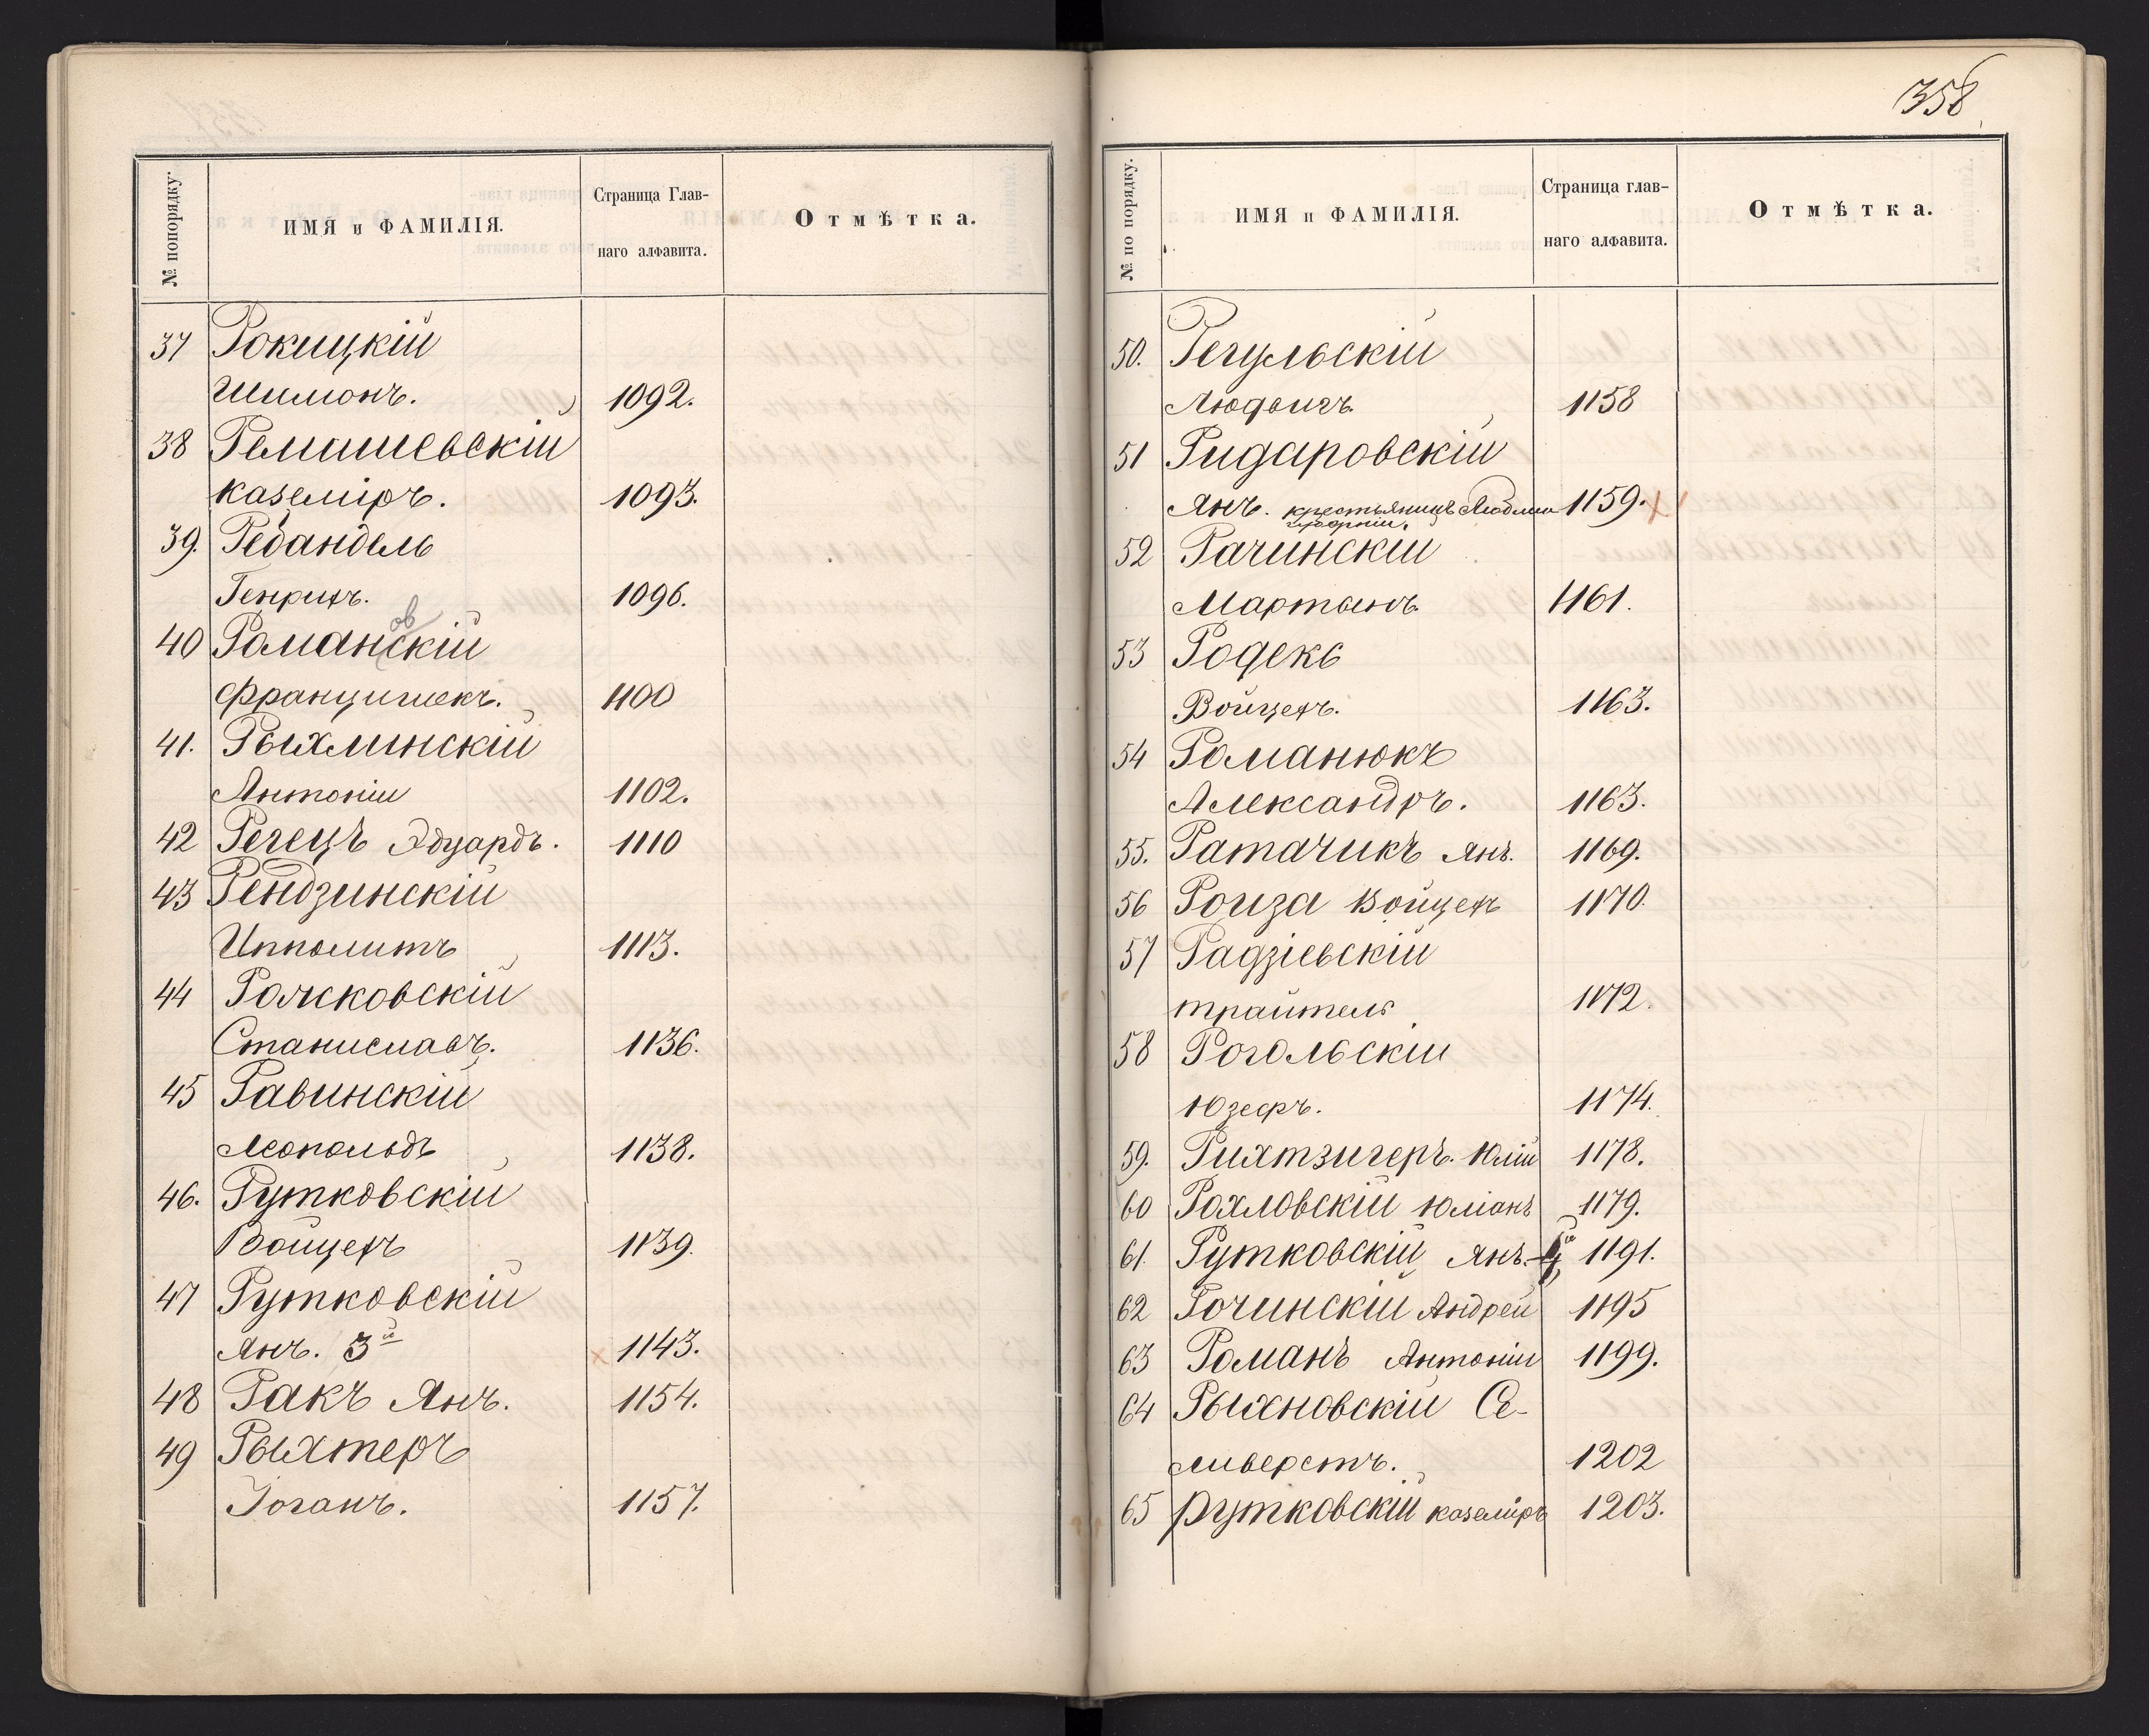 № попорядку.
ИМЯ и ФАМИЛІЯ.
Страница Глав-
наго алфавита.
Отмѣтка.
37 Рокицкій
Шимонъ. 1092.
38 Ремишевскій
Каземіръ. 1093.
39. Ребандель
Генрихъ. 1096.
ов
40 Романскій
Францишекъ. 1100
41. Рыхлинскій
Антоніи 1102.
42 Регецъ Эдуардъ. 1110
43 Рендзинскій
Ипполитъ 1113.
44 Рожсковскій
Станиславъ. 1136.
45 Равинскій
Леопольдъ 1138.
46. Рутковскій
Войцехъ 1139.
47 Рутковскій
Янъ. 3й 1143.
48 Ракъ Янъ. 1154.
49 Рыхтеръ
Іоганъ. 1157.
358
№ по порядку.
ИМЯ и ФАМИЛІЯ.
Страница глав-
наго алфавита.
Отмѣтка.
50. Регульскій
Людвигъ 1158
51 Ридаровскій
Янъ. крестьянинъ Люблин 1159.
губерніи.
52 Рачинскій
Мартынъ 1161.
53 Родекъ
Войцехъ. 1163.
54 Романюкъ
Александръ. 1163.
55. Ратачикъ Янъ. 1169.
56 Роиза Войцехъ 1170.
57 Радзіевскій
трайтель 1172.
58 Рогольскій
Юзефъ. 1174.
59. Рихтзигеръ. Юлій 1178.
60 Рохловскій Юліанъ 1179.
61. Рутковскій Янъ. 4й 1191.
62 Рочинскій Андрей 1195
63 Романъ Антоніи 1199.
64 Рыхновскій Се-
ливерстъ. 1202
65 Рутковскій Каземіръ 1203.